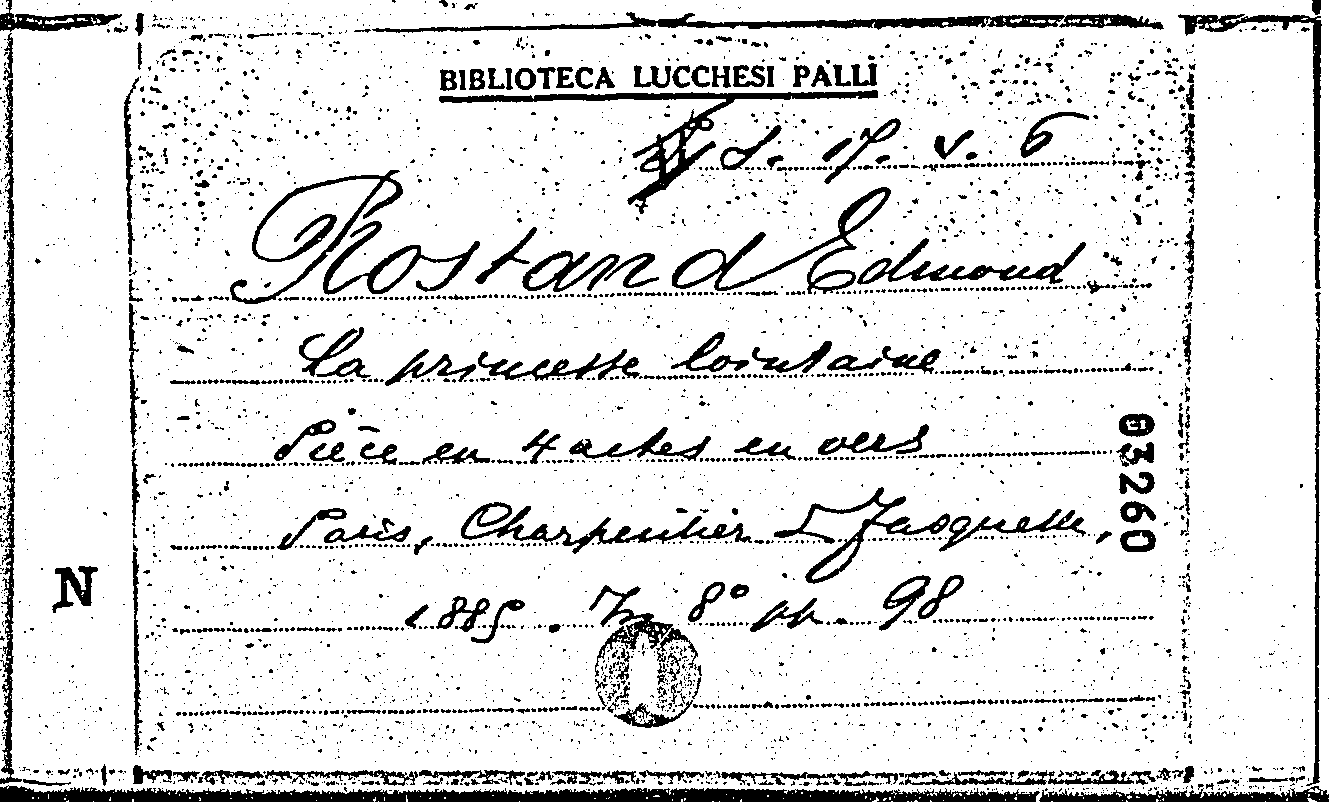 BIBLIOTECA LUCCHESI PALLI
S. 17. V. 6
Rostand Edmond
La princesse lointaine
Pièce en 4 actes en vers
Paris, Charpentier & Fasquelle,
1885. In 8° pp. 98
03260
N